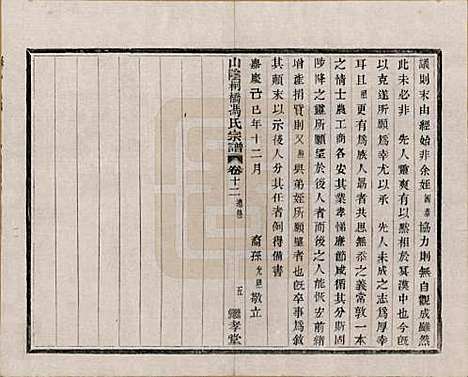 議則末由經始非余姪國泰協力則無自觀成雖然
此未必非　先人靈爽有以默相於冥漠中也今既
以克遂所願爲幸尤以承　先人未成之志爲厚幸
耳且　祖更願爲吾族人朂者共思無忝之義常敦一本
之情士農工商各安其業孝悌廉節咸循其分財固
陟降之所願望於後人者而後之人能恢宏前緒
增產捐貲則又　與弟姪所願望者也旣卒事爲敘
其顛末以示後人分其例得備書
嘉慶己巳年十二月　裔孫　光　敬立
山陰桐橋馮氏宗譜　卷十二　五　繼孝堂